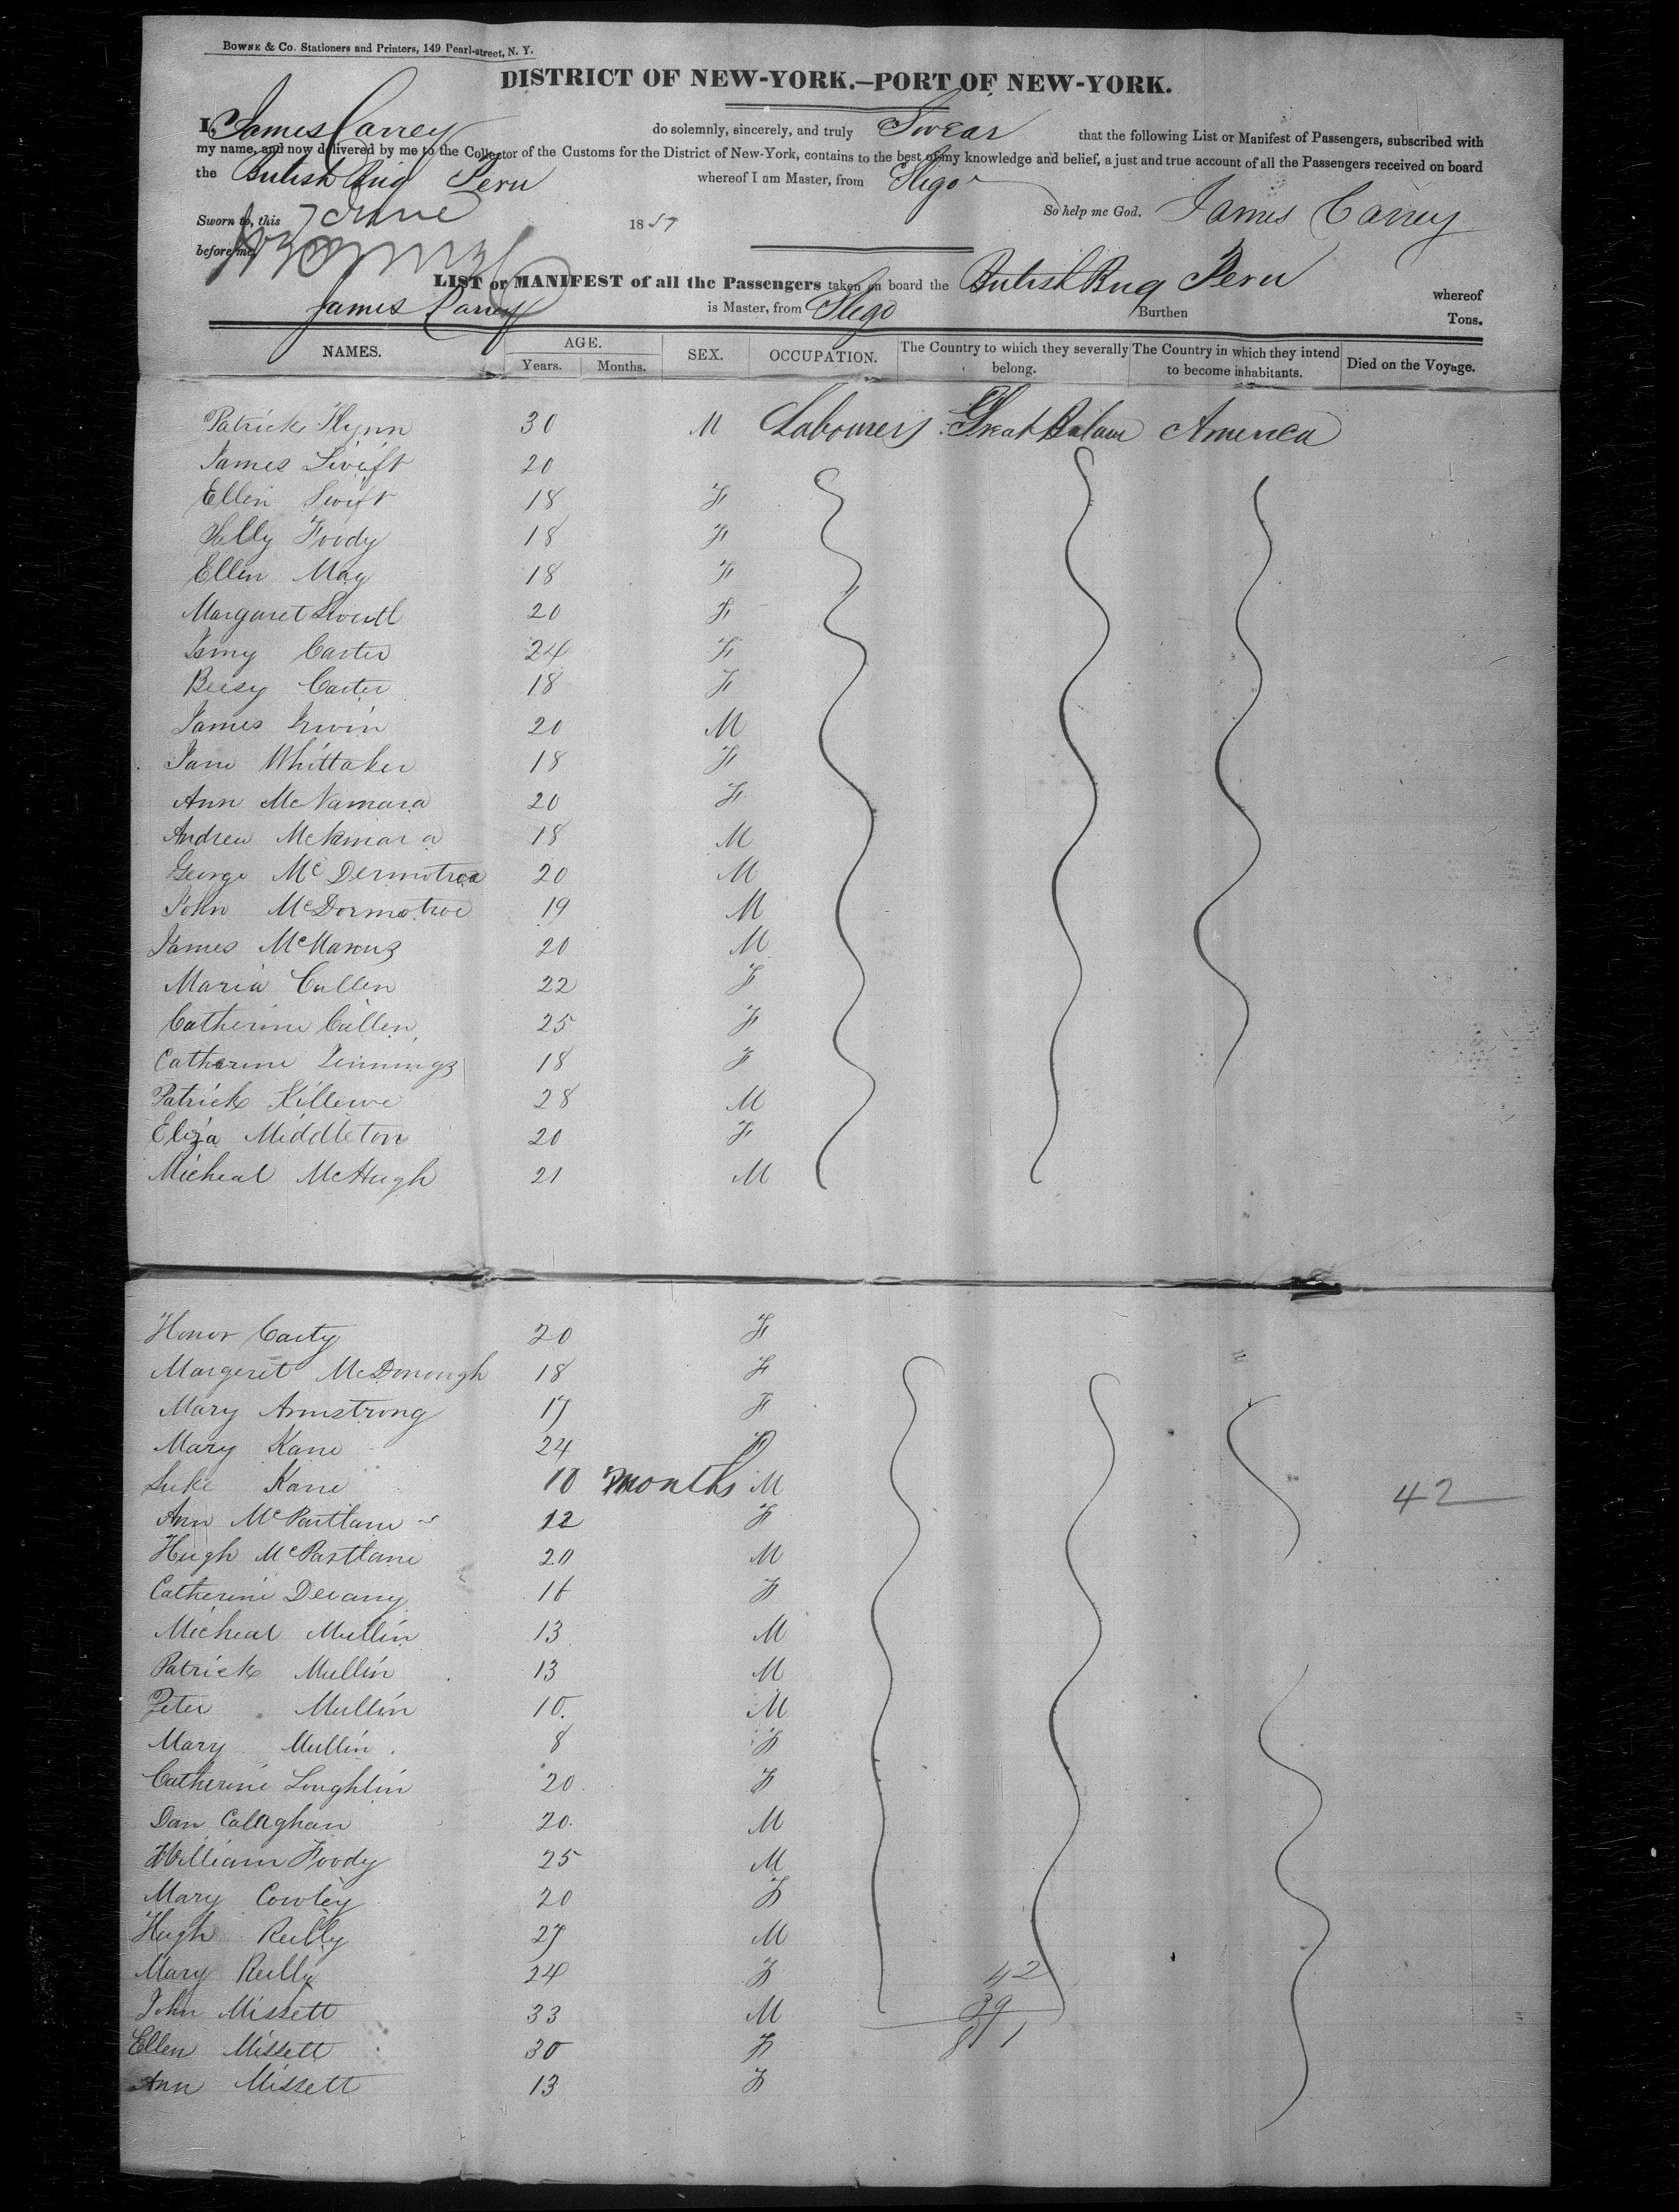 BOWNE & Co. Stationers and Printers, 149 Pearl-street, N. Y.
DISTRICT OF NEW-YORK.—PORT OF NEW-YORK.
I, James Carrey do solemnly, sincerely, and truly Swear that the following List or Manifest of Passengers, subscribed with
my name, and now delivered by me to the Collector of the Customs for the District of New-York, contains to the best of my knowledge and belief, a just and true account of all the Passengers received on board
the British Brig Peru whereof I am Master, from Sligo
Sworn to, this 7 June 1857 So help me God. James Carrey
before me,
LIST or MANIFEST of all the Passengers taken on board the British Brig Peru whereof
James Carrey is Master, from Sligo Burthen Tons.
NAMES. AGE. Years. Months. SEX. OCCUPATION. The Country to which they severally belong. The Country in which they intend to become inhabitants. Died on the Voyage.
Patrick Flynn 30 M Labourers Great Britain America
James Swift 20
Ellen Swift 18 F
Sally Foody 18 F
Ellen May 18 F
Margaret 20 F
Carter 24 F
Bessy Carter 18 F
James Irwin 20 M
Jane Whittaker 18 F
Ann McNamara 20 F
Andrew McNamara 18 M
George McDermotroe 20 M
John McDormotroe 19 M
James McManus 20 M
Maria Cullen 22 F
Catherine Cullen 25 F
Catharine Jennings 18 F
Patrick Killewe 28 M
Eliza Middleton 20 F
Micheal McHugh 21 M
Honor Carty 20 F
Margeret McDonough 18 F
Mary Armstrong 17 F
Mary Kane 24 F
Luke Kane 10 months M 42
Ann McPartlane 12 F
Hugh McPartlane 20 M
Catherine Devany 16 F
Micheal Mullin 13 M
Patrick Mullin 13 M
Peter Mullin 10. M
Mary Mullin. 8 F
Catherine Loughlin 20 F
Dan Calaghan 20. M
William Foody 25 M
Mary Cowley 20 F
Hugh Reilly 27 M
Mary Reilly 24 F 42
John Missett 33 M 39
Ellen Missett 30 F 81
Ann Missett 13 F